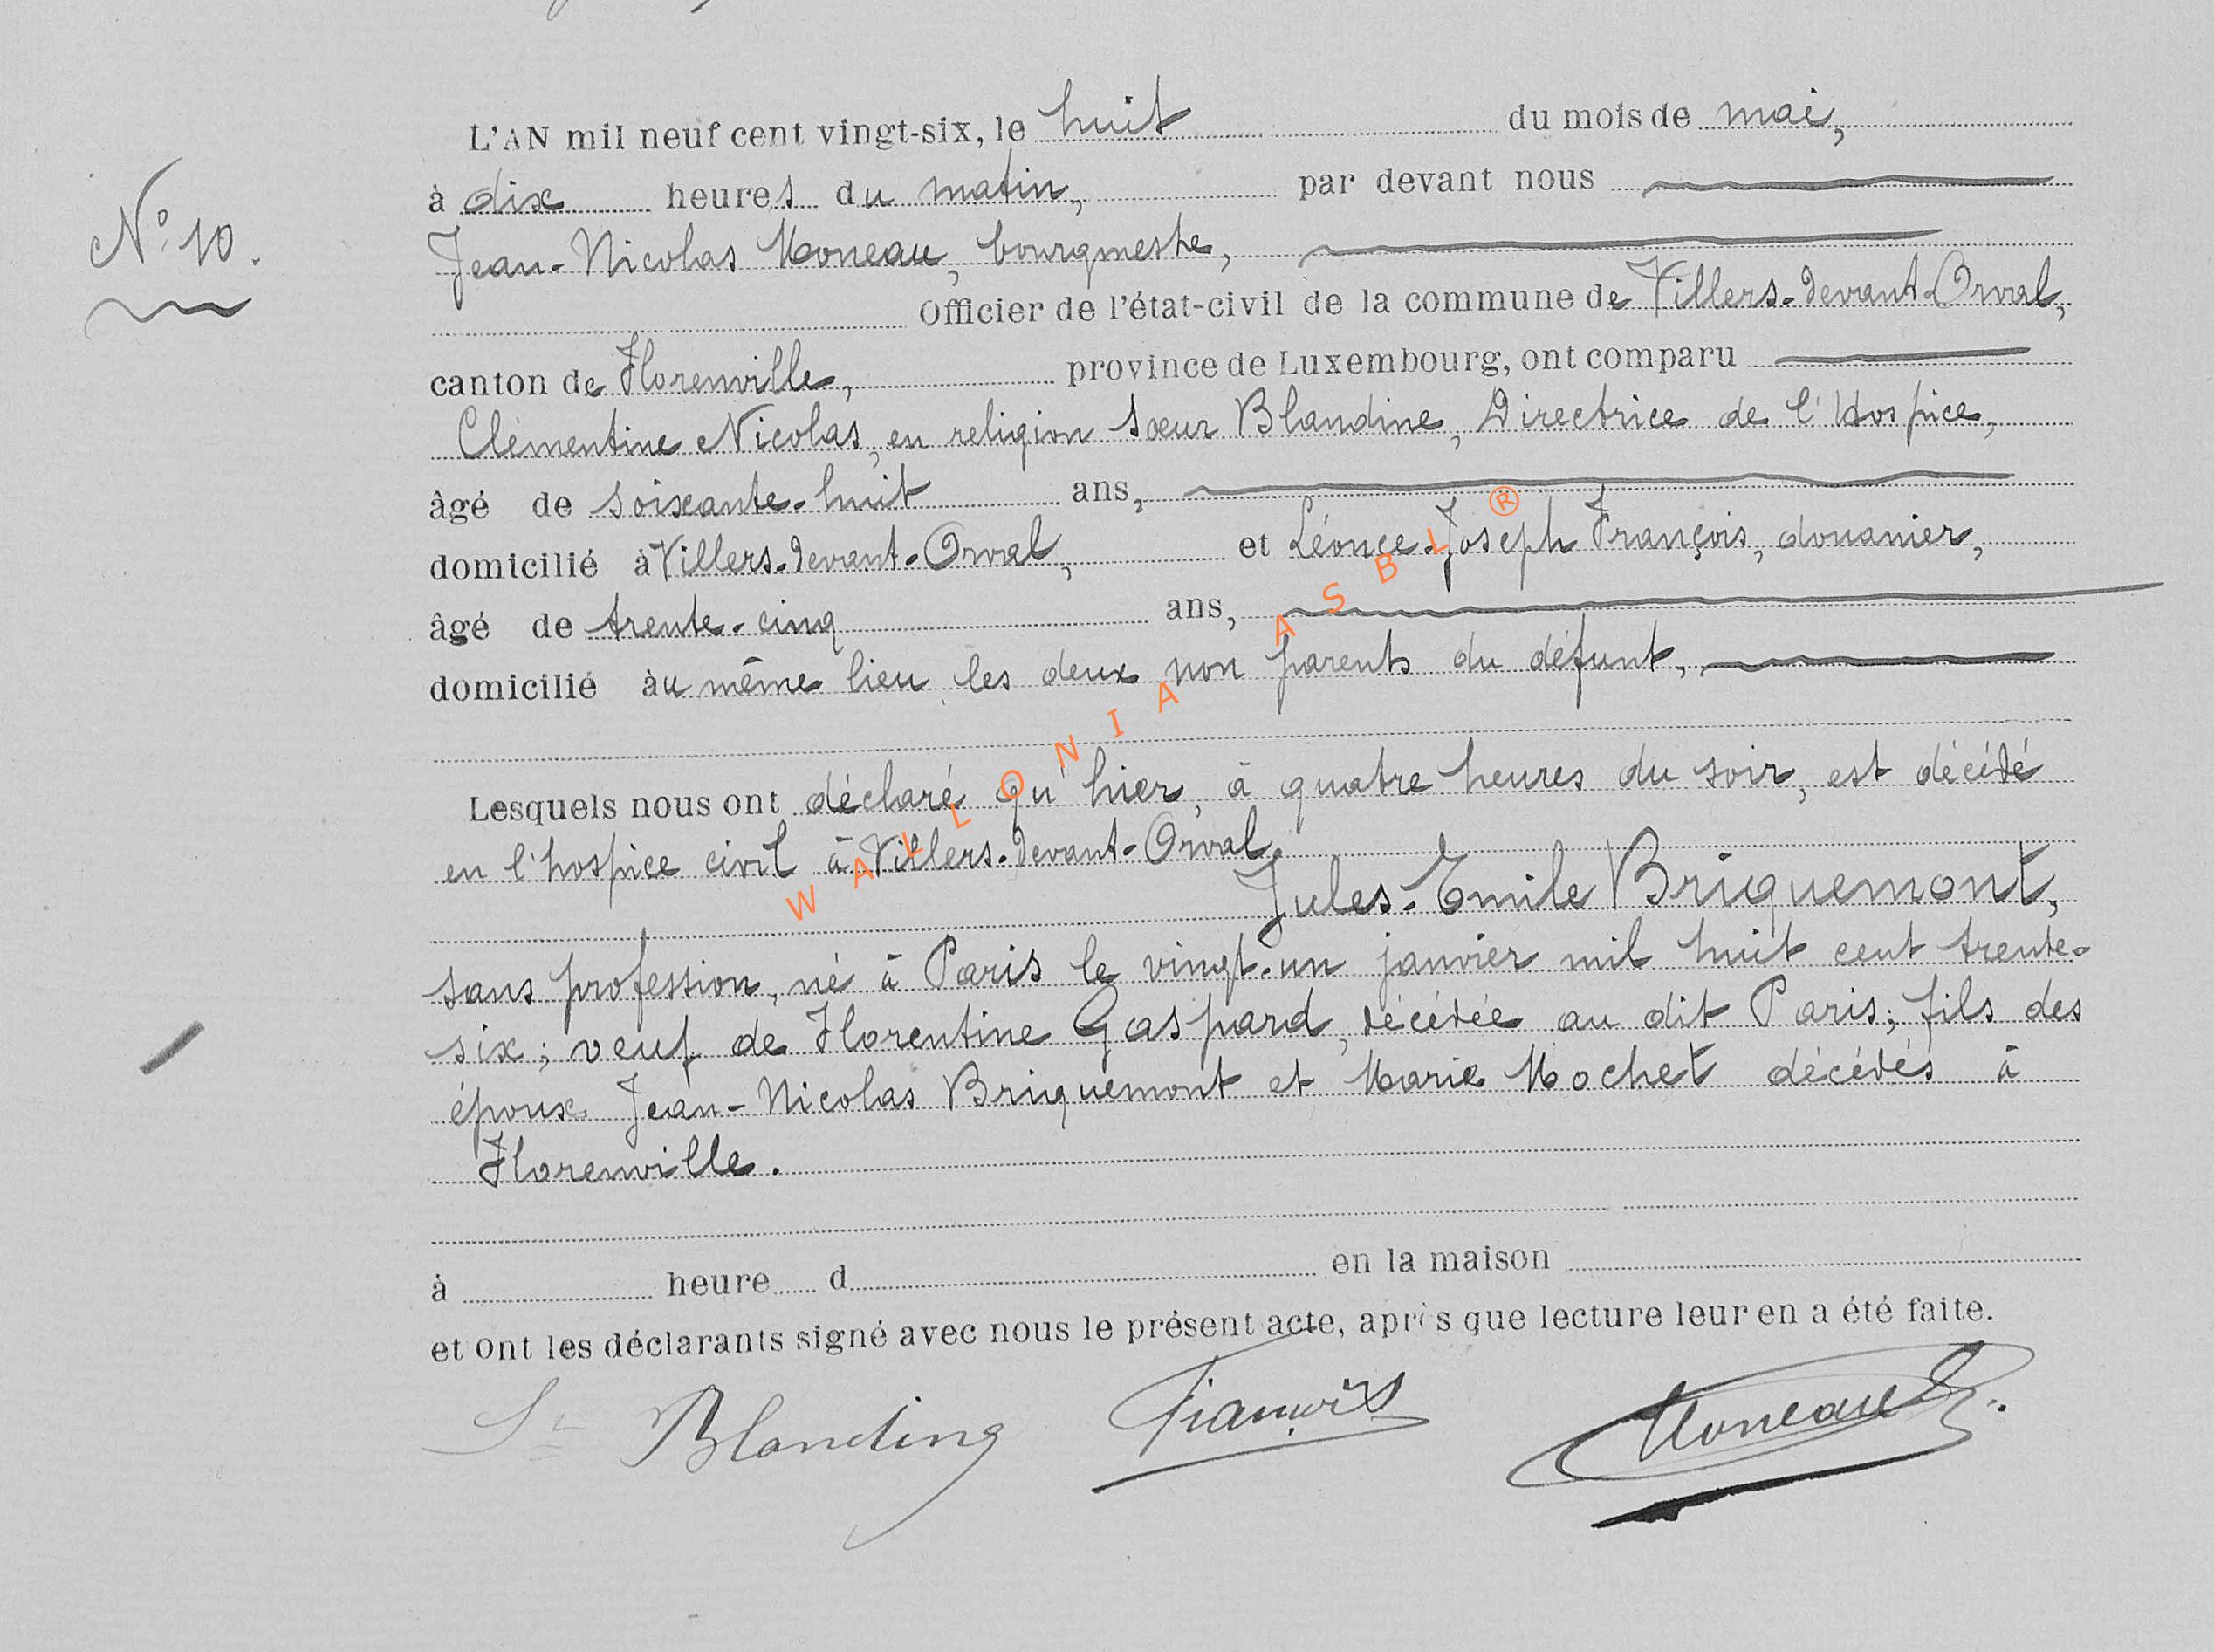 L'AN mil neuf cent vingt-six, le huit du mois de mai,
à dix heures du matin, par devant nous
N° 10.
Jean-Nicolas Moneau, bourgmestre,
Officier de l'état-civil de la commune de Villers-devant-Orval,
canton de Florenville, province de Luxembourg, ont comparu
Clémentine Nicolas, en religion Sœur Blandine, Directrice de l'Hospice,
âgé de soixante-huit ans,
domicilié à Villers-devant-Orval, et Léonce-Joseph François, douanier,
âgé de trente-cinq ans,
domicilié àu même lieu, les deux non parents du défunt,
Lesquels nous ont déclaré qu'hier, à quatre heures du soir, est décédé
en l'hospice civil à Villers-devant-Orval,
Jules-Emile Briquemont,
sans profession, né à Paris le vingt-un janvier mil huit cent trente-
six; veuf de Florentine Gaspard, décédée au dit Paris; fils des
époux Jean-Nicolas Briquemont et Marie Mochet décédés à
Florenville.
à heure d en la maison
et ont les déclarants signé avec nous le présent acte, après que lecture leur en a été faite.
Sr Blandine François Moneau
WALLONIA ASBL ®